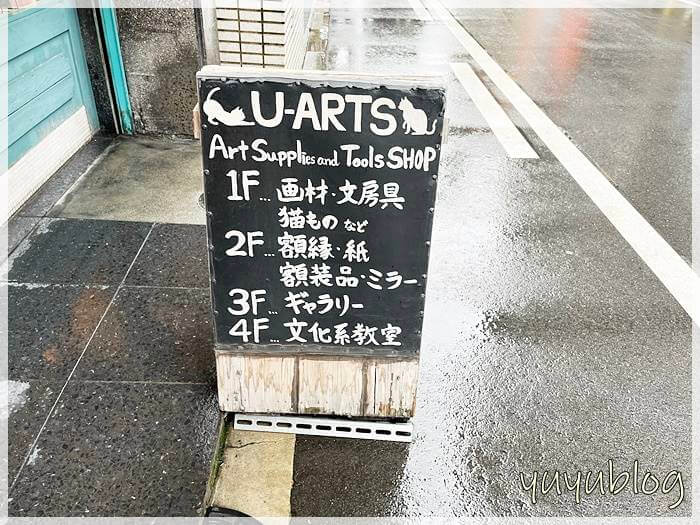 U-ARTS
Art Supplies and Tools SHOP
1F… 画材・文房具
猫もの など
2F… 額縁・紙
額装品・ミラー
3F… ギャラリー
4F… 文化系教室
yuyublog